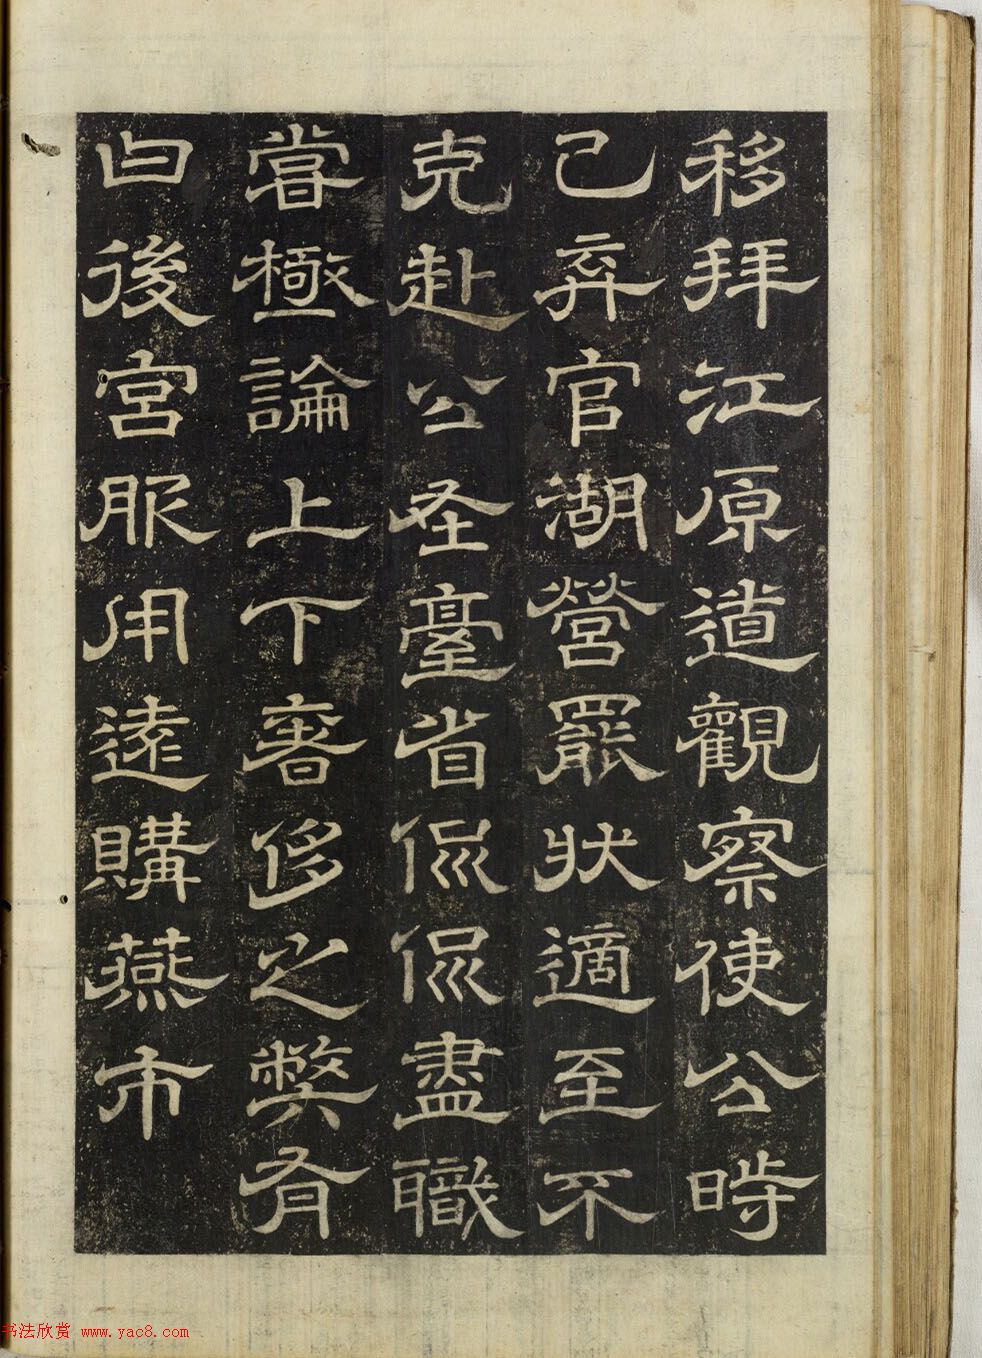 移拜江原道觀察使公時
已弃官湖營罷狀適至不
克赴公在臺省侃侃盡職
嘗極論上下奢侈之弊有
曰後宮服用遠購燕市
书法欣赏 www.yac8.com